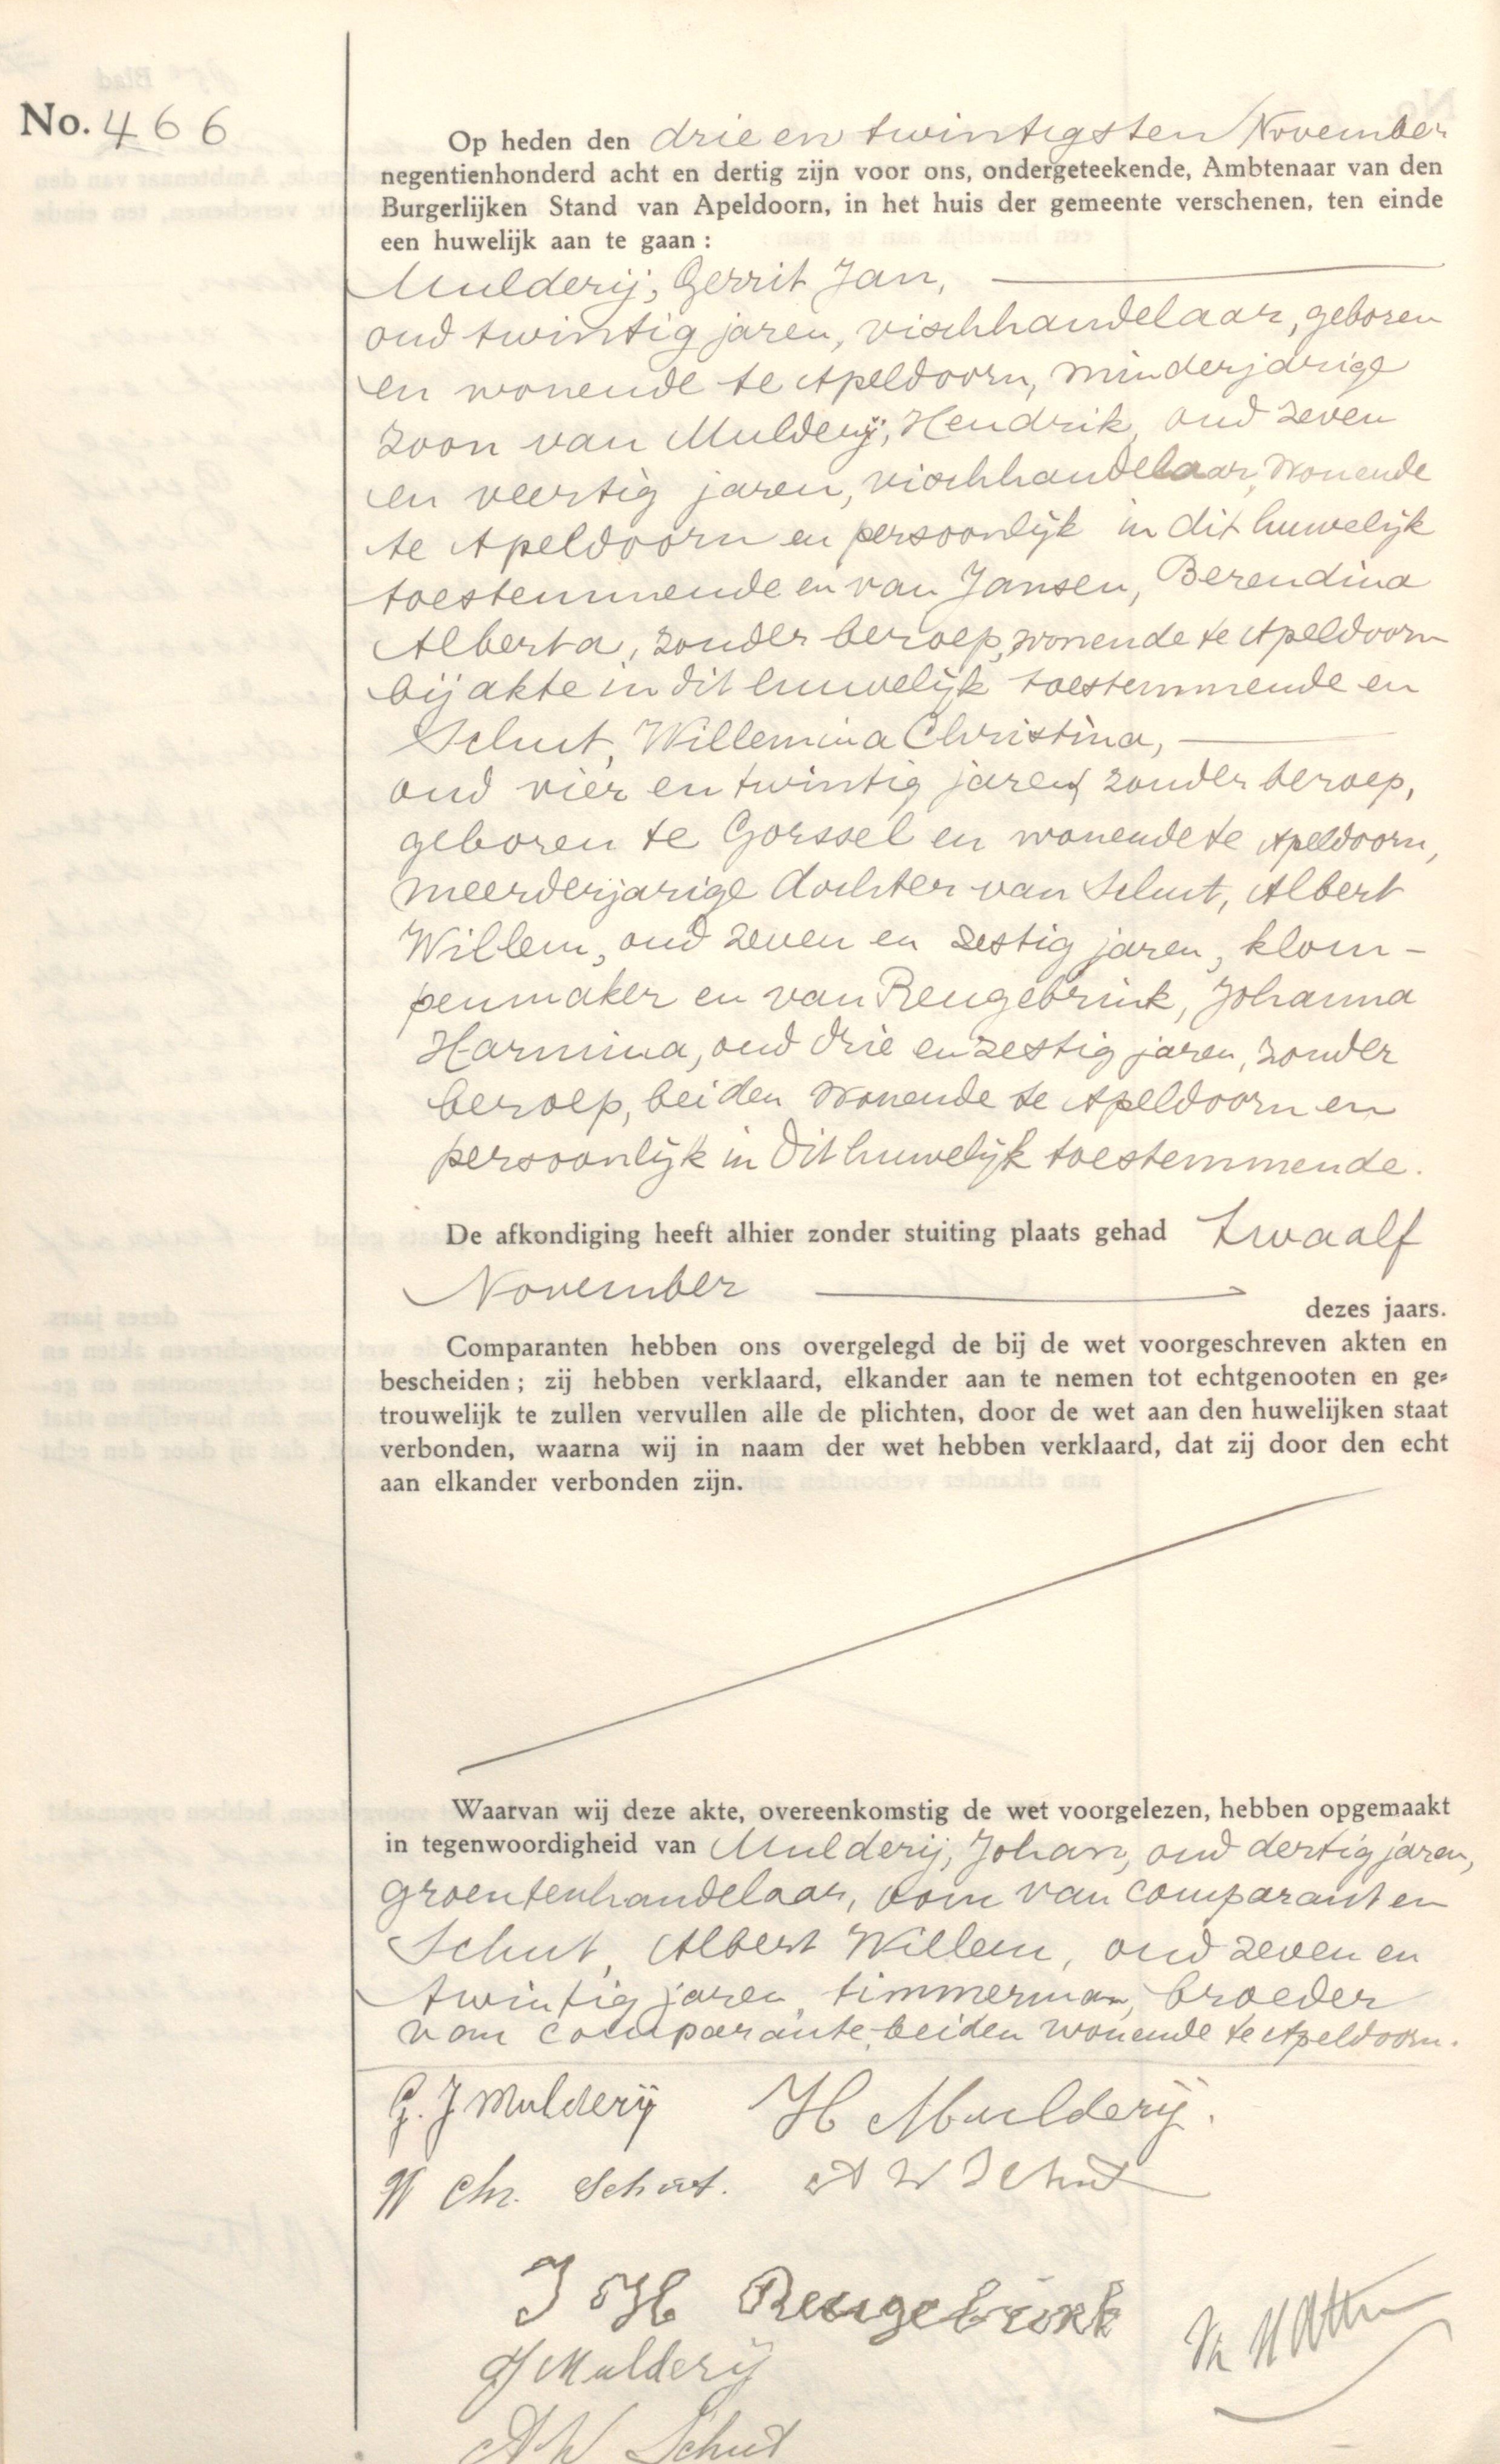 No. 466
Op heden den drie en twintigsten November
negentienhonderd acht en dertig zijn voor ons, ondergeteekende, Ambtenaar van den
Burgerlijken Stand van Apeldoorn, in het huis der gemeente verschenen, ten einde
een huwelijk aan te gaan :
Mulderij, Gerrit Jan,
oud twintig jaren, vischhandelaar, geboren
en wonende te Apeldoorn, minderjarige
zoon van Mulderij, Hendrik, oud zeven
en veertig jaren, vischhandelaar, wonende
te Apeldoorn en persoonlijk in dit huwelijk
toestemmende en van Jansen, Berendina
Alberta, zonder beroep, wonende te Apeldoorn
bij akte in dit huwelijk toestemmende en
Schut, Willemina Christina,
oud vier en twintig jaren, zonder beroep,
geboren te Gorssel en wonende te Apeldoorn,
meerderjarige dochter van Schut, Albert
Willem, oud zeven en zestig jaren, klom-
penmaker en van Reugebrink, Johanna
Harmina, oud drie en zestig jaren, zonder
beroep, beiden wonende te Apeldoorn en
persoonlijk in dit huwelijk toestemmende.
De afkondiging heeft alhier zonder stuiting plaats gehad twaalf
November dezes jaars.
Comparanten hebben ons overgelegd de bij de wet voorgeschreven akten en
bescheiden ; zij hebben verklaard, elkander aan te nemen tot echtgenooten en ge-
trouwelijk te zullen vervullen alle de plichten, door de wet aan den huwelijken staat
verbonden, waarna wij in naam der wet hebben verklaard, dat zij door den echt
aan elkander verbonden zijn.
Waarvan wij deze akte, overeenkomstig de wet voorgelezen, hebben opgemaakt
in tegenwoordigheid van Mulderij, Johan, oud dertig jaren,
groentenhandelaar, oom van comparant en
Schut, Albert Willem, oud zeven en
twintig jaren, timmerman, broeder
van comparante, beiden wonende te Apeldoorn.
G. J Mulderij H Mulderij.
W Chr. Schut. A W Schut
J H Reugebrink
J Mulderij
A W Schut